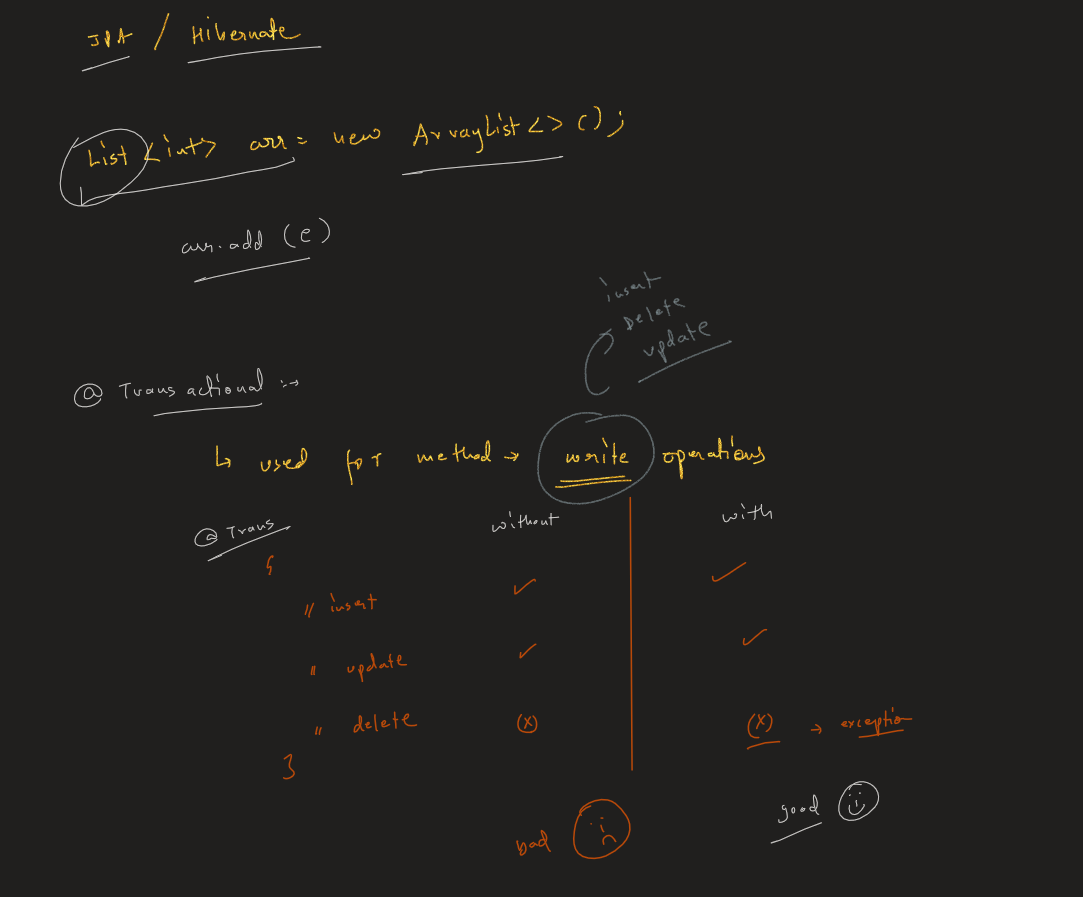 JPA / Hibernate
List <int> arr = new ArrayList<> ();
arr.add (e)
insert
Delete
update
@ Transactional :→
↳ used for method → write operations
@ Trans without with
{
// insert ✓ ✓
// update ✓ ✓
// delete (x) (x) → exception
}
bad ☹ good ☺